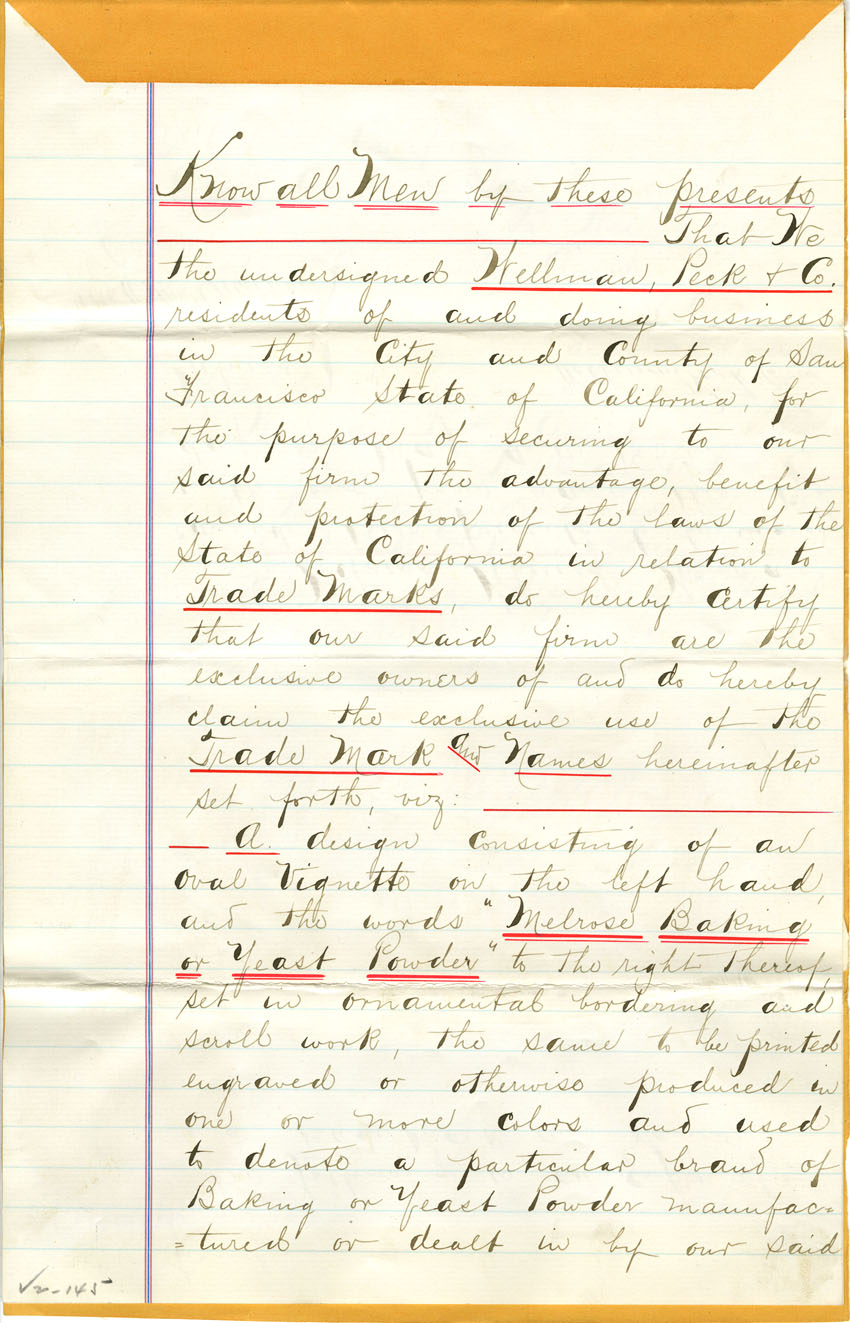 Know all Men by these presents
That We
the undersigned Wellman, Peck & Co.
residents of and doing business
in the City and County of San
Francisco State of California, for
the purpose of securing to our
said firm the advantage, benefit
and protection of the laws of the
State of California in relation to
Trade Marks, do hereby certify
that our said firm are the
exclusive owners of and do hereby
claim the exclusive use of the
Trade Mark and Names hereinafter
set forth, viz:
— A. design consisting of an
oval Vignette on the left hand,
and the words "Melrose Baking
or Yeast Powder" to the right thereof,
set in ornamental bordering and
scroll work, the same to be printed
engraved or otherwise produced in
one or more colors and used
to denote a particular brand of
Baking or Yeast Powder manufac=
=tured or dealt in by our said
√2-145